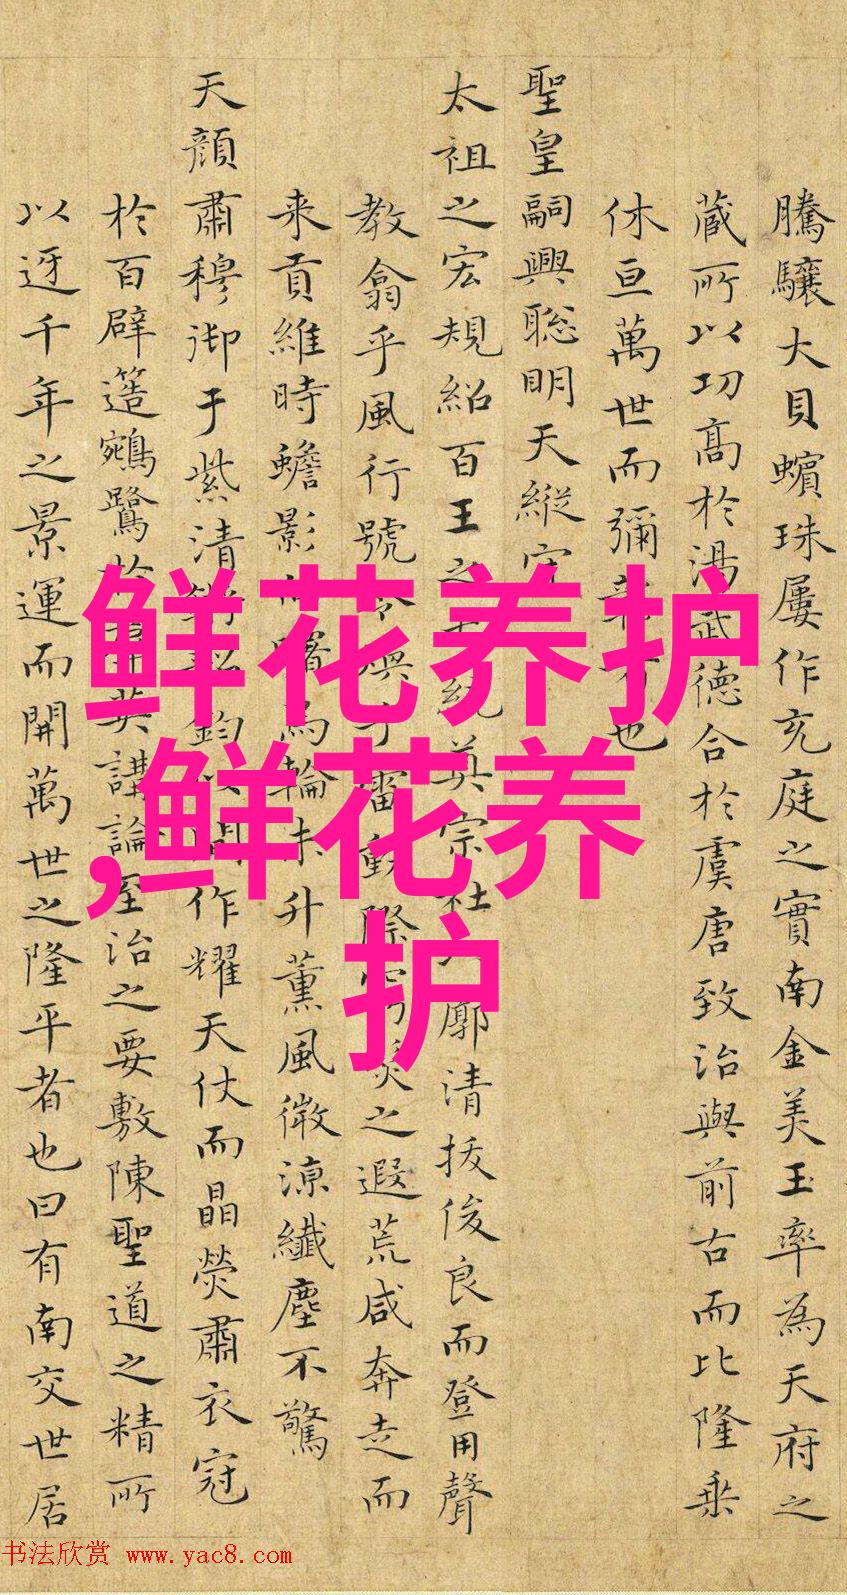 騰驤大貝蠙珠屢作充庭之實南金美玉率為天府之
蔵所以功髙於湯武德合於虞唐致治與前古而比隆乗
休亘萬世而彌也
聖皇嗣興聡明天縱守
太祖之宏規紹百王之統奠宗社廓清拔俊良而登用聲
教翕乎風行號令于雷動際之遐荒咸奔走而
来貢維時蟾影曙烏輪未升薰風微涼纖塵不驚
天顔肅穆御于紫清鈞作耀天仗而晶熒肅衣冠
於百辟簉鵷鷺於英講論至治之要敷陳聖道之精所
以迓千年之景運而開萬世之隆平者也曰有南交世居
鲜花养护
,鲜花养
护
书法欣赏 www.yac8.com